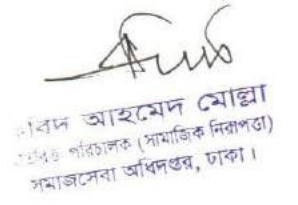 আহমেদ মোল্লা
পরিচালক (সামাজিক নিরাপত্তা)
সমাজসেবা অধিদপ্তর, ঢাকা।